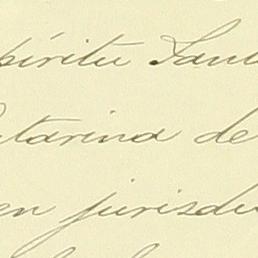 píritu Sant
atarina de
en jurisdic